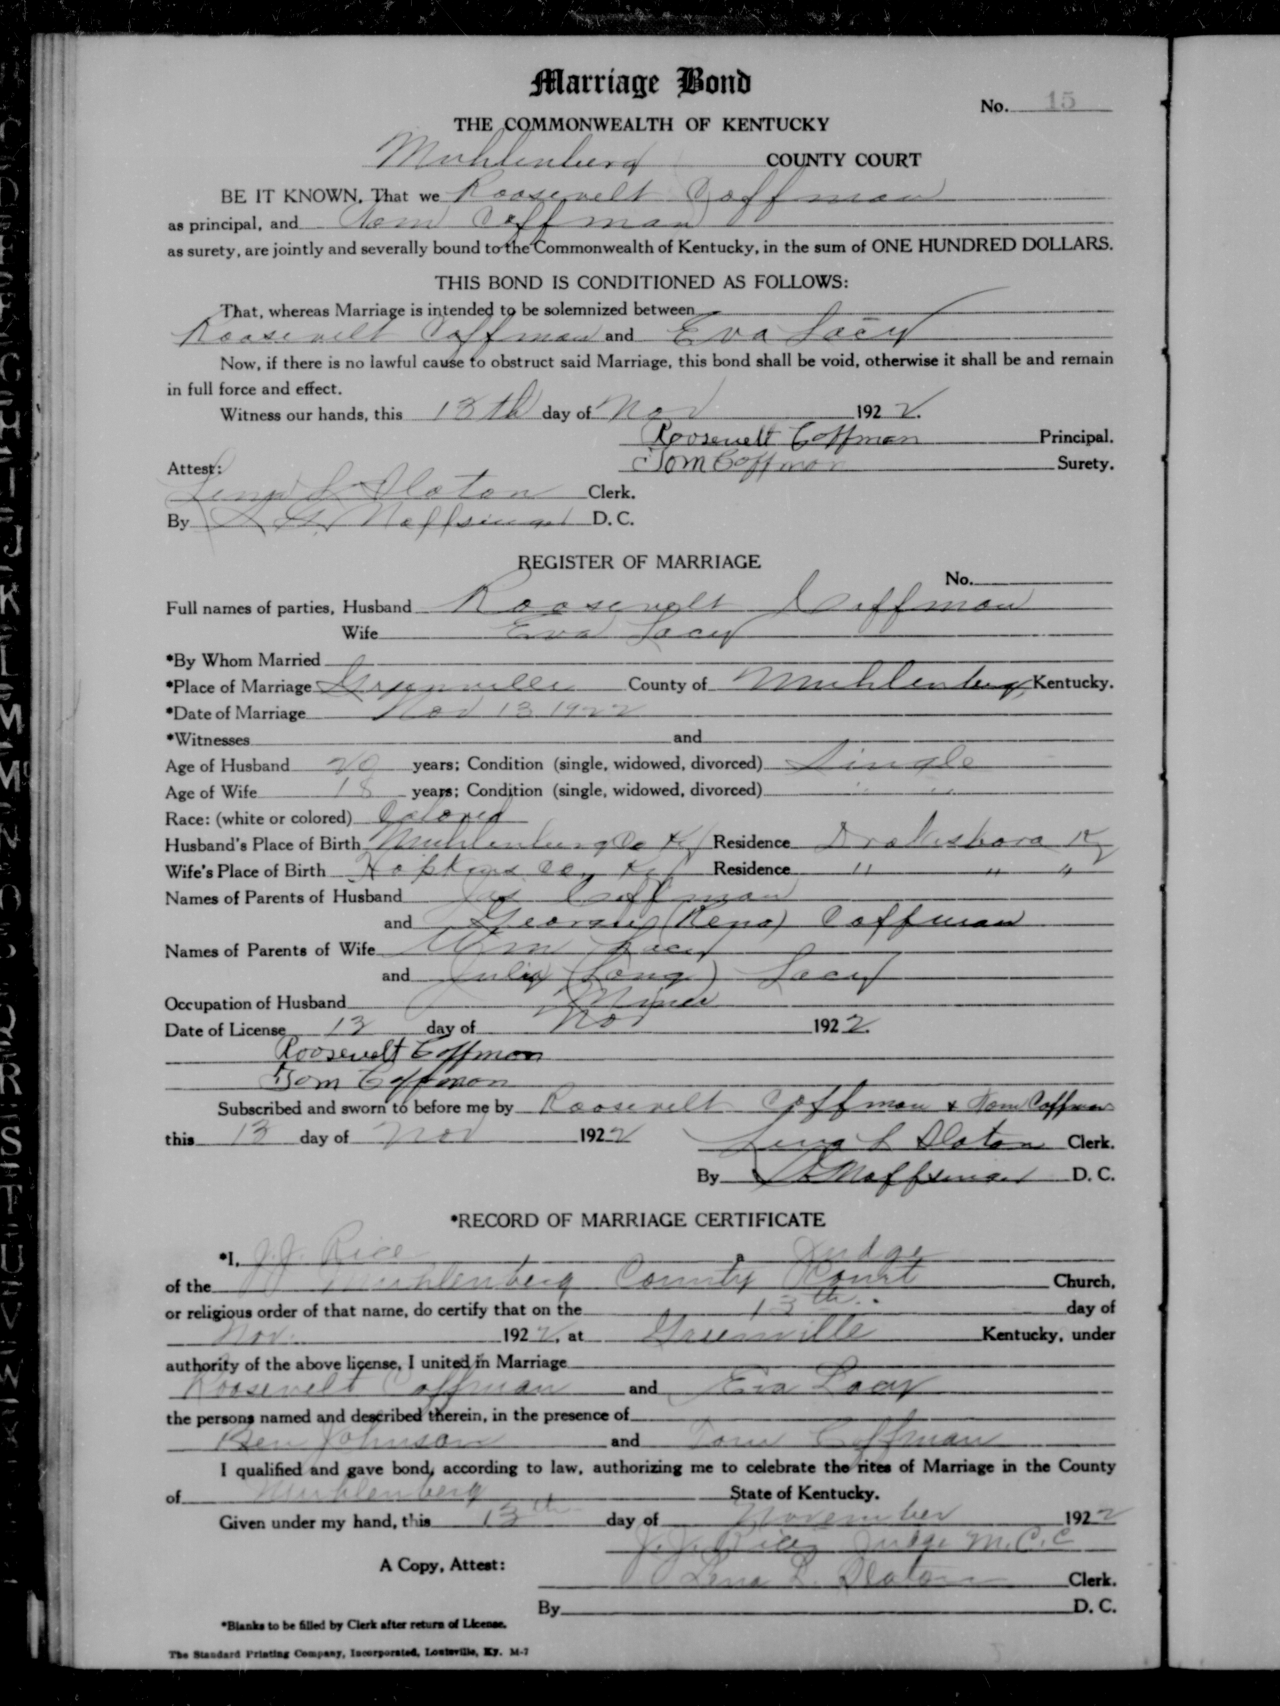 Marriage Bond
No. 15
THE COMMONWEALTH OF KENTUCKY
Muhlenberg COUNTY COURT
BE IT KNOWN, That we Roosevelt Coffman
as principal, and Tom Coffman
as surety, are jointly and severally bound to the Commonwealth of Kentucky, in the sum of ONE HUNDRED DOLLARS.
THIS BOND IS CONDITIONED AS FOLLOWS:
That, whereas Marriage is intended to be solemnized between
Roosevelt Coffman and Eva Lacy
Now, if there is no lawful cause to obstruct said Marriage, this bond shall be void, otherwise it shall be and remain
in full force and effect.
Witness our hands, this 13th day of Nov 1922.
Roosevelt Coffman Principal.
Tom Coffman Surety.
Attest:
Lena L Slaton Clerk.
By Noffsinger D. C.
REGISTER OF MARRIAGE
No.
Full names of parties, Husband Roosevelt Coffman
Wife Eva Lacy
*By Whom Married
*Place of Marriage Greenville County of Muhlenberg, Kentucky.
*Date of Marriage Nov 13 1922
*Witnesses and
Age of Husband 20 years; Condition (single, widowed, divorced) Single
Age of Wife 18 years; Condition (single, widowed, divorced) " "
Race: (white or colored) Colored
Husband's Place of Birth Muhlenberg Co Ky Residence Drakesboro Ky
Wife's Place of Birth Hopkins Co, Ky Residence " " "
Names of Parents of Husband Jas Coffman
and Georgia (Reno) Coffman
Names of Parents of Wife Wm Lacy
and Julia (Long) Lacy
Occupation of Husband Miner
Date of License 13 day of Nov 1922.
Roosevelt Coffman
Tom Coffman
Subscribed and sworn to before me by Roosevelt Coffman & Tom Coffman
this 13 day of Nov 1922
Lena L Slaton Clerk.
By Noffsinger D. C.
*RECORD OF MARRIAGE CERTIFICATE
*I, J.J. Rice a Judge
of the Muhlenberg County Court Church,
or religious order of that name, do certify that on the 13th. day of
Nov. 1922, at Greenville Kentucky, under
authority of the above license, I united in Marriage
Roosevelt Coffman and Eva Lacy
the persons named and described therein, in the presence of
Ben Johnson and Tom Coffman
I qualified and gave bond, according to law, authorizing me to celebrate the rites of Marriage in the County
of Muhlenberg State of Kentucky.
Given under my hand, this 13th day of November 1922
J.J. Rice, Judge M.C.C
A Copy, Attest:
Lena L. Slaton Clerk.
By D. C.
*Blanks to be filled by Clerk after return of License.
The Standard Printing Company, Incorporated, Louisville, Ky. M-7